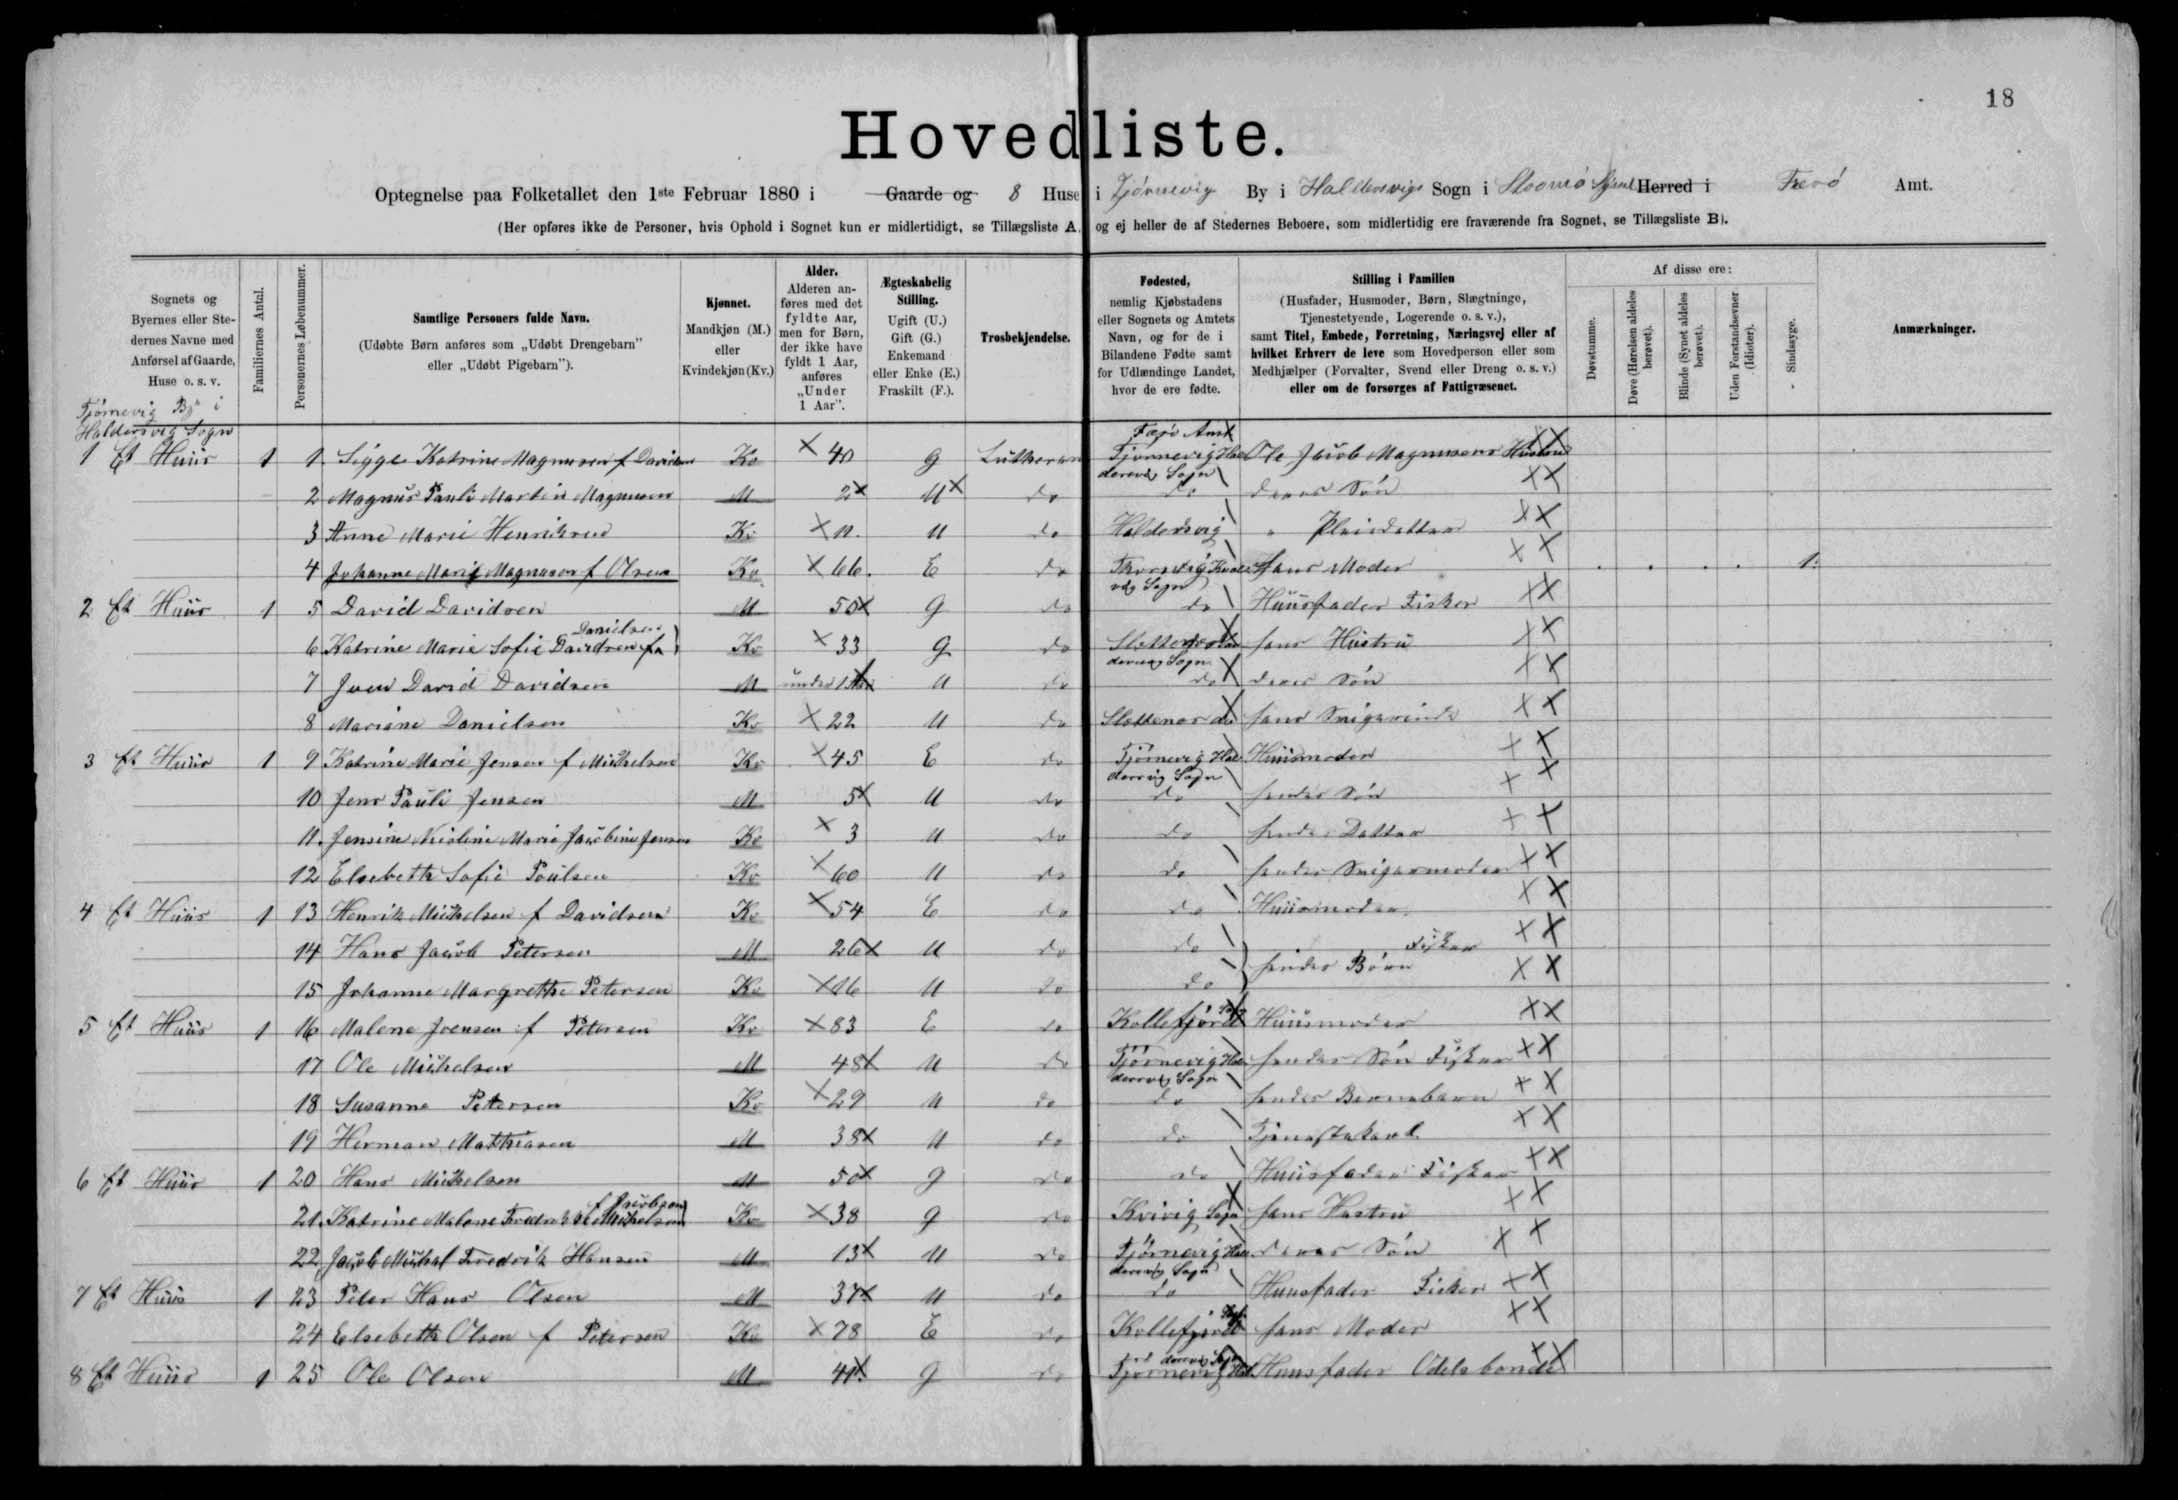 18
Hovedliste.
Optegnelse paa Folketallet den 1ste Februar 1880 i Gaarde og 8 Huse i Tjörnevig By i Haldersvigs Sogn i Strömö Syssel Herred i Færö Amt.
(Her opføres ikke de Personer, hvis Ophold i Sognet kun er midlertidigt, se Tillægsliste A, og ej heller de af Stedernes Beboere, som midlertidig ere fraværende fra Sognet, se Tillægsliste B).
Sognets og Byernes eller Stedernes Navne med Anførsel af Gaarde, Huse o. s. v.
Familiernes Antal.
Personernes Løbenummer.
Samtlige Personers fulde Navn.
(Udøbte Børn anføres som „Udøbt Drengebarn" eller „Udøbt Pigebarn").
Kjønnet.
Mandkjøn (M.) eller Kvindekjøn (Kv.)
Alder.
Alderen anføres med det fyldte Aar, men for Børn, der ikke have fyldt 1 Aar, anføres „Under 1 Aar".
Ægteskabelig Stilling.
Ugift (U.) Gift (G.) Enkemand eller Enke (E.) Fraskilt (F.).
Trosbekjendelse.
Fødested,
nemlig Kjøbstadens eller Sognets og Amtets Navn, og for de i Bilandene Fødte samt for Udlændinge Landet, hvor de ere fødte.
Stilling i Familien
(Husfader, Husmoder, Børn, Slægtninge, Tjenestetyende, Logerende o. s. v.),
samt Titel, Embede, Forretning, Næringsvej eller af hvilket Erhverv de leve som Hovedperson eller som Medhjælper (Forvalter, Svend eller Dreng o. s. v.) eller om de forsørges af Fattigvæsenet.
Af disse ere:
Døvstumme.
Døve (Hørelsen aldeles berøvet).
Blinde (Synet aldeles berøvet).
Uden Forstandsevner (Idioter).
Sindssyge.
Anmærkninger.
Tjörnevig By i
Haldersvig Sogn
Færö Amt
1 Et Huus 1 1 Sigge Katrine Magnusen f Davidsen Kv × 40 G Lutheran Tjörnevig Haldersvig Sogn Ole Jacob Magnusens Hustru ××
2 Magnus Pauli Martin Magnusen M 2× U× do do deres Sön ××
3 Anne Marie Henriksen Kv ×11. U do Haldersvig " Pleiedatter ××
4 Johanne Marie Magnusen f Olsen Kv ×66. E do hans Moder ×× 1.
2 Et Huus 1 5 David Davidsen M 50× G do do Huusfader Fisker ××
6 Katrine Marie Sofie Davidsen f Danielsen Kv × 33 G do hans Hustru ××
7 Joen David Davidsen M under 1 Aar U do do deres Sön ××
8 Mariane Danielsen Kv × 22 U do Slettenes do hans Svigerinde ××
3 Et Huus 1 9 Katrine Marie Jensen f Mickelsen Kv × 45 E do Tjörnevig Haldersvig Sogn Huusmoder ××
10 Jens Pauli Jensen M 5× U do do hendes Sön ××
11. Jensine Nicoline Marie Jacobine Jensen Kv × 3 U do do hendes Datter ××
12 Elsebeth Sofie Poulsen Kv × 60 U do do hendes Svigermoder ××
4 Et Huus 1 13 Henrik Mickelsen f Davidsen Kv × 54 E do do Huusmoder ××
14 Hans Jacob Petersen M 26× U do do Fisker ××
15 Johanne Margrethe Petersen Kv ×16 U do do hendes Börn ××
5 Et Huus 1 16 Malene Joensen f Petersen Kv ×83 E do Kollefjörd Huusmoder ××
17 Ole Mickelsen M 48× U do Tjörnevig Haldersvig Sogn hendes Sön Fisker ××
18 Susanne Petersen Kv ×29 U do do hendes Barnebarn ××
19 Herman Mathiasen M 38× U do do Tjenestekarl ××
6 Et Huus 1 20 Hans Mickelsen M 50× G do do Huusfader Fisker ××
21. Katrine Malene Fredrikke Mickelsen f Jacobsen Kv ×38 G do Kvivig Sogn hans Hustru ××
22 Jacob Mickal Fredrik Hansen M 13× U do Tjörnevig Haldersvig Sogn deres Sön ××
7 Et Huus 1 23 Peter Hans Olsen M 37× U do do Huusfader Fisker ××
24 Elsebeth Olsen f Petersen Kv ×78 E do Kollefjord hans Moder ××
8 Et Huus 1 25 Ole Olsen M 41× G do Tjörnevig Haldersvig Sogn Huusfader Odelsbonde ××